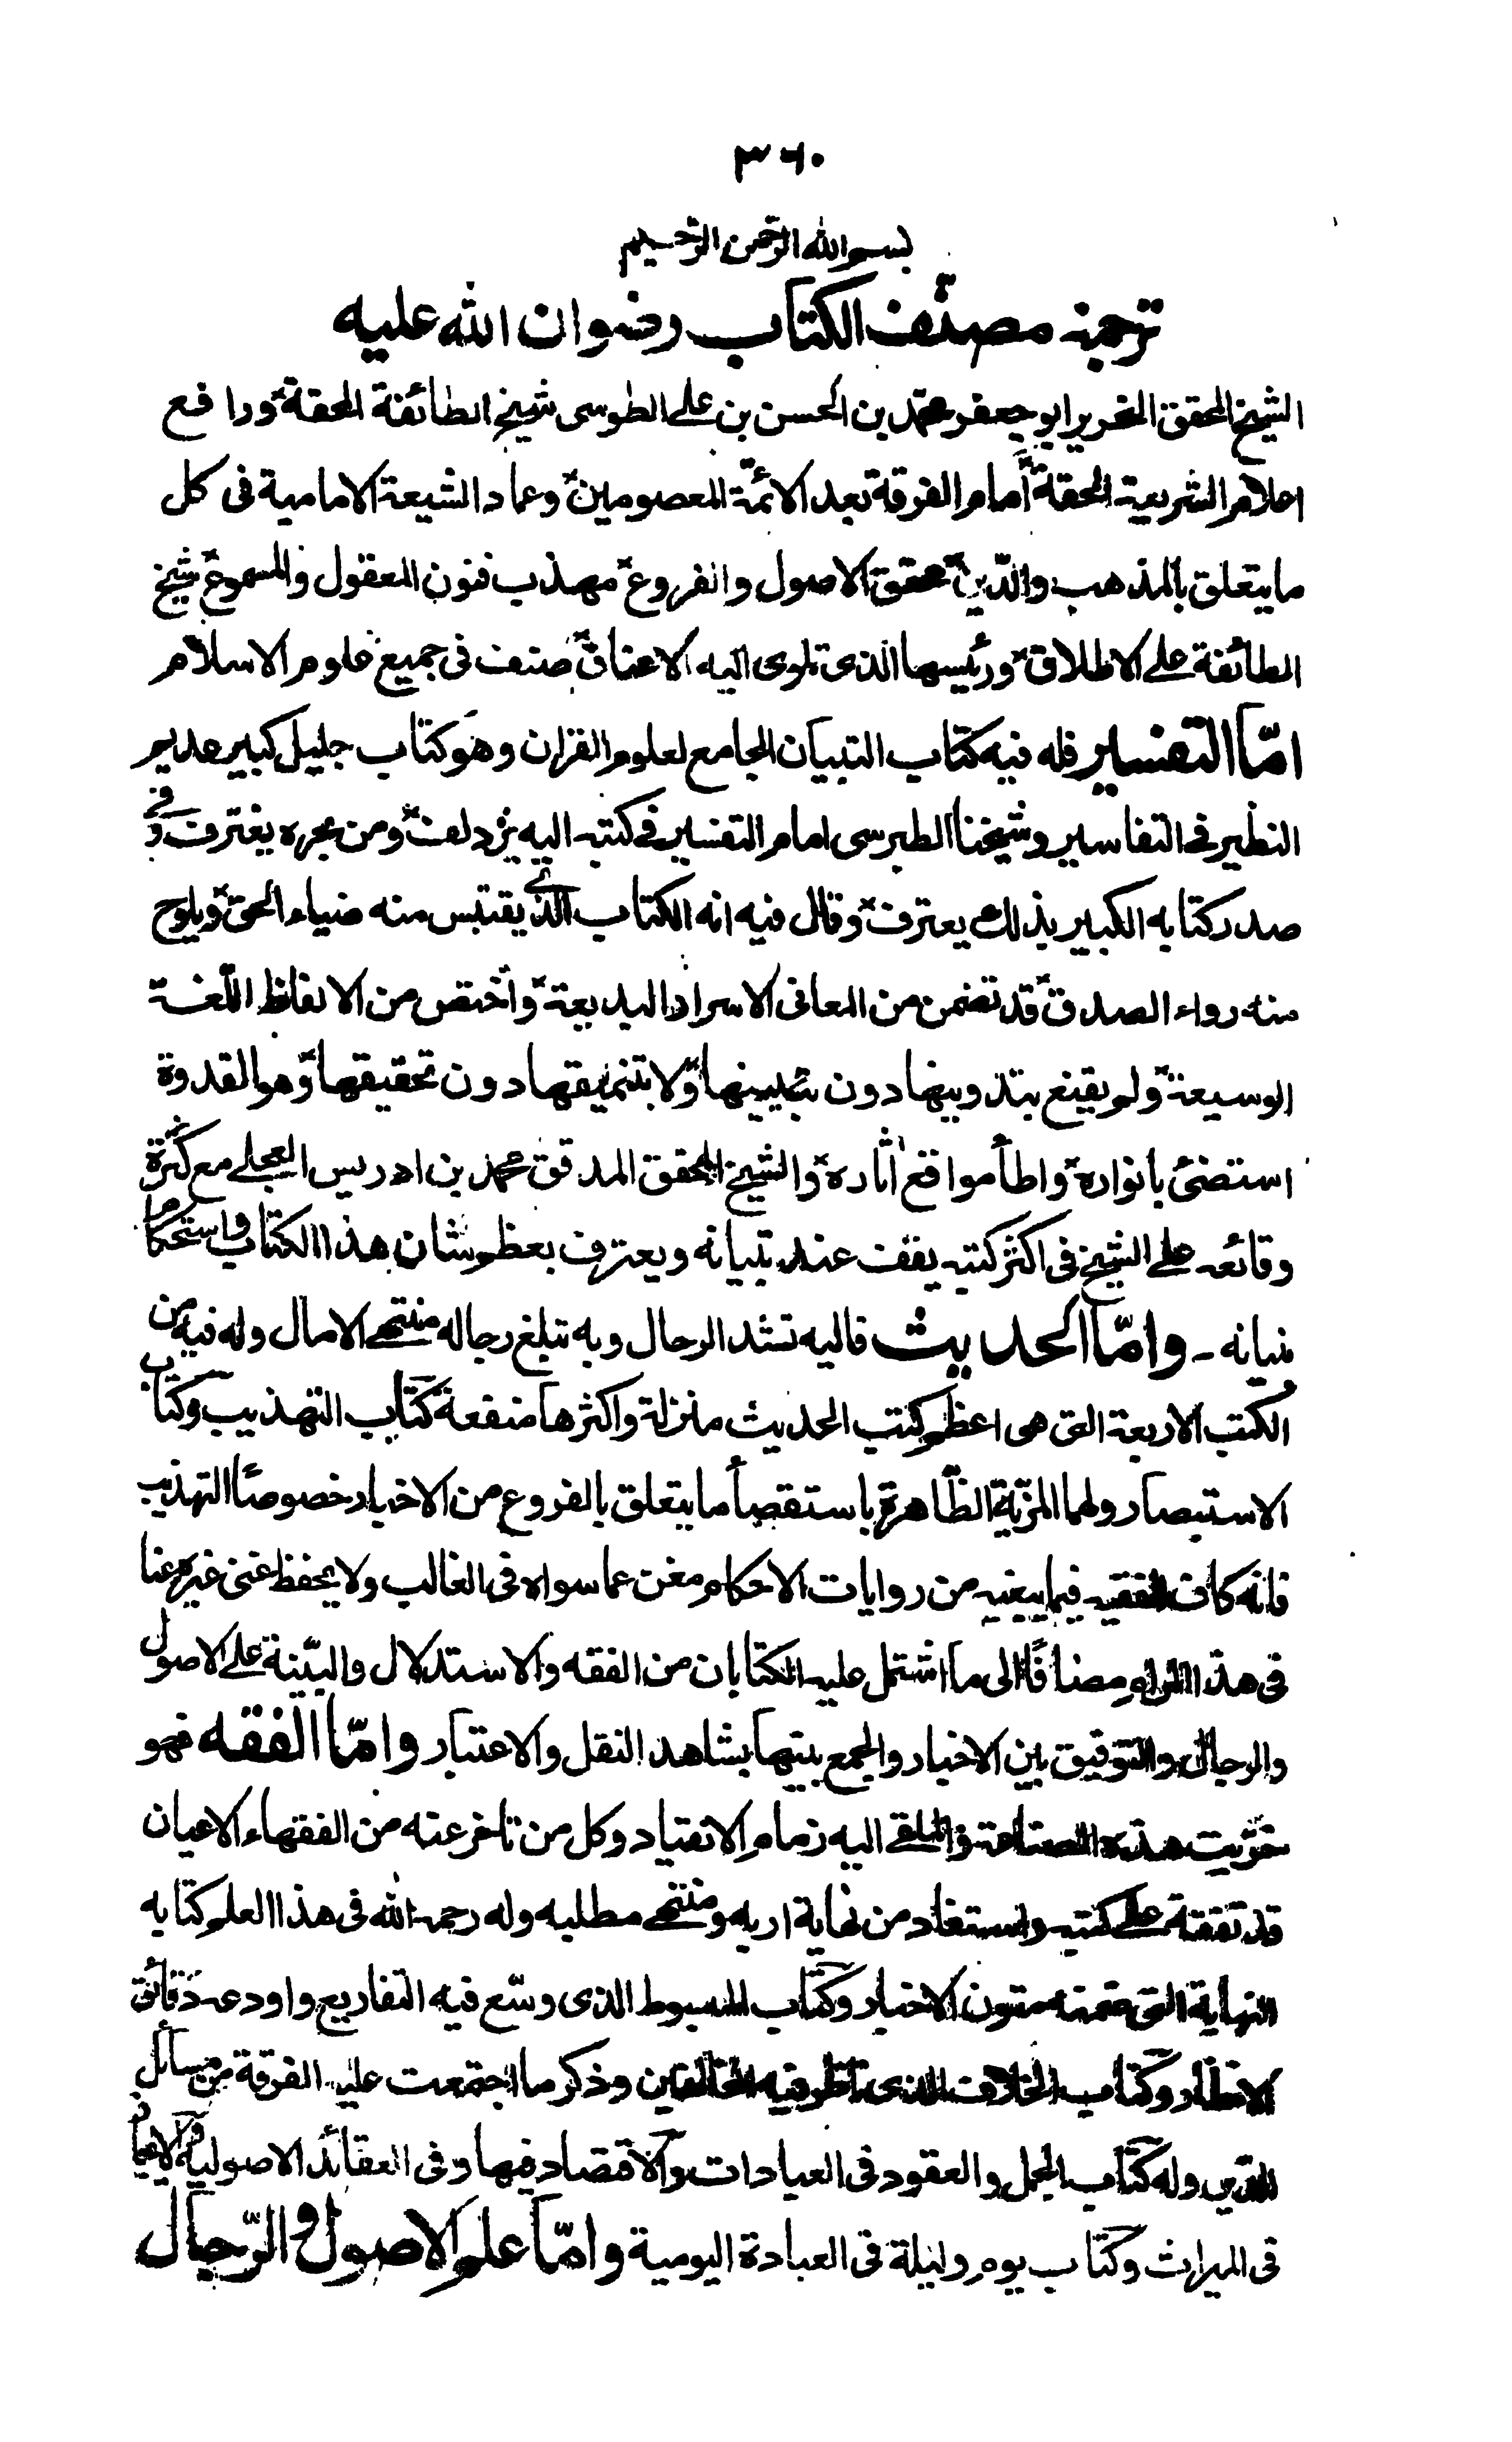 ٣٦٠
بسم الله الرحمن الرحيم
ترجمة مصنّف الكتاب رضوان الله عليه
الشيخ المحقق النحرير ابو جعفر محمّد بن الحسن بن على الطوسى شيخ الطائفة المحقة ورافع
اعلام الشريعة الحقة امام الفرقة بعد الائمّة المعصومين وعماد الشيعة الامامية فى كل
ما يتعلق بالمذهب والدّين محقق الاصول والفروع مهذب فنون المعقول والمسموع شيخ
الطائفة على الاطلاق ورئيسها الذى تلوى اليه الاعناق صنف فى جميع علوم الاسلام
امّا التفسير فله فيه كتاب التبيان الجامع لعلوم القران وهو كتاب جليل كبير عديم
النظير فى التفاسير وشيخنا الطبرسى امام التفسير فى كتبه اليه يزدلف ومن بحره يغترف وفى
صدر كتابه الكبير بذلك يعترف وقال فيه انه الكتاب الذى يقتبس منه ضياء الحق ويلوح
منه رواء الصدق قد تضمن من المعانى الاسرار البديعة واختص من الالفاظ اللغة
الوسيعة ولم يقنع بتدوينها دون تبيينها ولا بتنميقها دون تحقيقها وهو القدوة
استضئ بانواره واطأ مواقع اثاره والشيخ المحقق المدقق محمد بن ادريس العجلى مع كثرة
وقائعه على الشيخ فى اكثر كتبه يقف عند تبيانه ويعترف بعظم شان هذا الكتاب واستحكام
بنيانه - وامّا الحديث فاليه تشد الرحال وبه تبلغ رجاله منتهى الامال وله فيه من
الكتب الاربعة التى هى اعظم كتب الحديث منزلة واكثرها منفعة كتاب التهذيب وكتاب
الاستبصار ولهما المزيّة الظّاهرة باستقصأ ما يتعلق بالفروع من الاخبار خصوصًا التهذيب
فانه كاف للفقيه فيما يبغيه من روايات الاحكام مغن عما سواه فى الغالب ولا يحفظ عنى غيره عنا
فى هذا المرام مضافًا الى ما اشتمل عليه الكتابان من الفقه والاستدلال والبيّنة على الاصول
والرجال والتوفيق بين الاخبار والجمع بينها بشاهد النقل والاعتبار وامّا الفقه فهو
خرّيت هذه الصناعة والملقى اليه زمام الانقياد وكل من تاخر عنه من الفقهاء الاعيان
قد تفقه على كتبه واستفاد من نهاية اربه ومنتهى مطلبه وله رحمه الله فى هذا العلم كتابه
النهاية التى ضمنه متون الاخبار وكتاب المبسوط الذى وسّع فيه التفاريع واودعه دقائق
الانظار وكتاب الخلاف الذى ناظر فيه المخالفين وذكر ما اجتمعت عليه الفرقة من مسائل
الدّين وله كتاب الجمل والعقود فى العبادات والاقتصاد فيها وفى العقائد الاصولية والايجاز
فى الميراث وكتاب يوم وليلة فى العبادة اليومية وامّا علم الاصول والرّجال